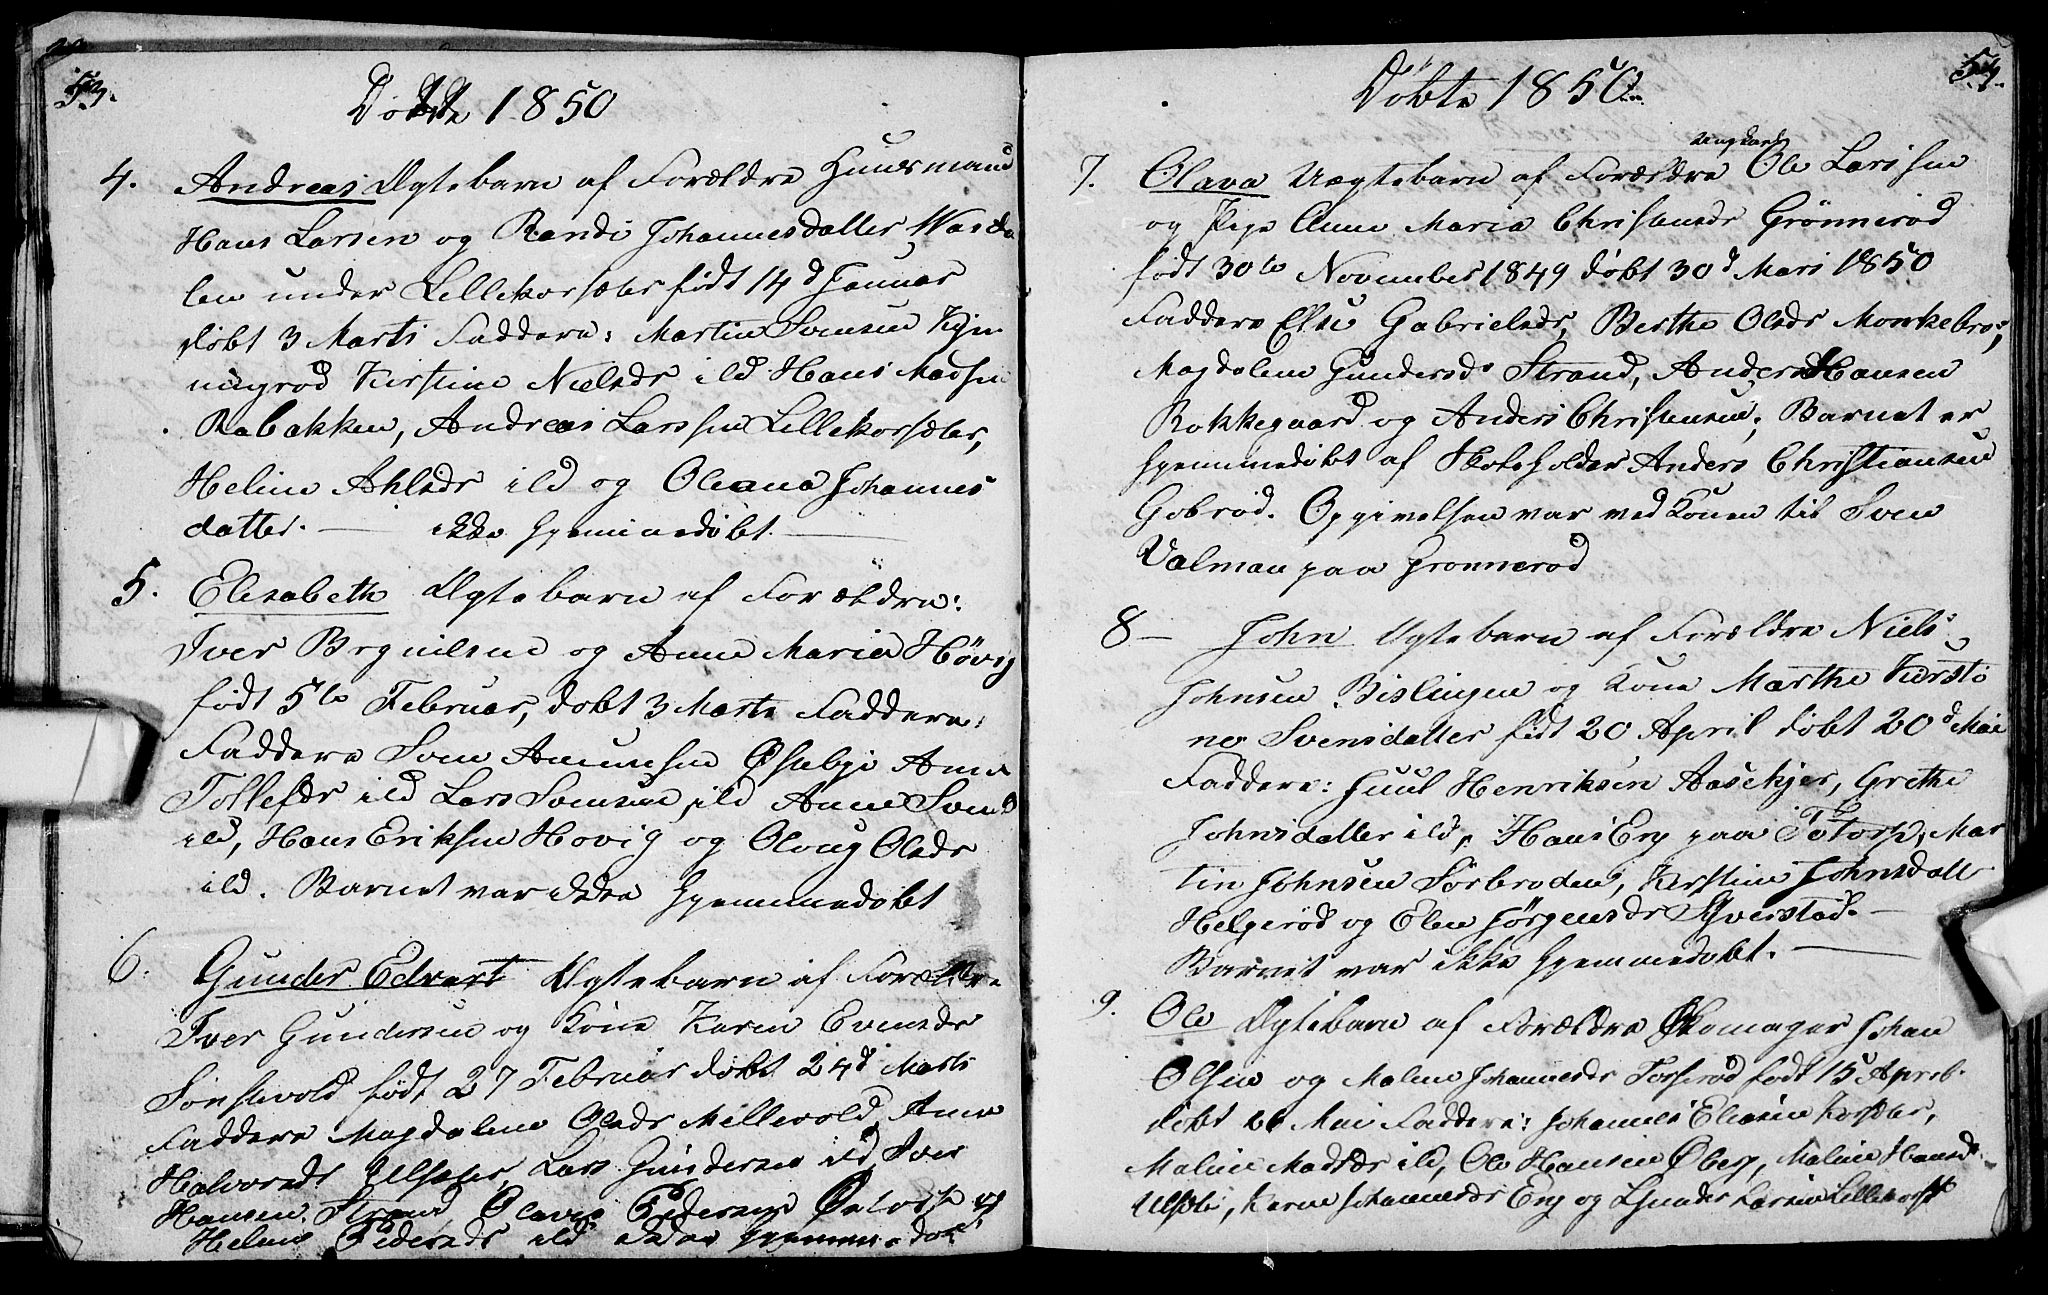 53.
Döbte 1850
4. Andreas Ægtebarn af Forældre Huusmand
Hans Larsen og Randi Johannesdatter Wasda
len under Lillekorsæter født 14d Januar
döbt 3 Marts Faddere: Martin Svensen
Kirstine Nielsdr ild Hans Madsen
Rabakken, Andreas Larssen Lillekorsæter,
Heline Ahlsdr ild og Oleana Johannes
datter. — ikke hjemmedöbt. —
5. Elisabeth Ægtebarn af Forældre:
Iver Brynilsen og Anne Maria Hövig
født 5te Februar, döbt 3 Marts Faddere:
Faddere Sven Amunsen Østebye Anne
Tollefsdr ild Lars Svensen ild Anne Svensd
ild, Hans Eriksen Hovig og Oloug Olsdr
ild. Barnet var ikke hjemmedöbt
6. Gunder Edvart Ægtebarn af Forældre
Iver Gundersen og Kone Karen Evensdr
Sonstevold født 27 Februar döbt 24d Marts
Faddere Magdalene Olsdr Millevold, Anne
Halvorsdt Ulsæter, Lars Gundersen ild Iver
Hansen Strand Olaves Pedersen Østorp og
Heline Pedersdr ild ikke hjemmedöbt
54.
Döbte 1850
7. Olava Uægtebarn af Forældre Ungkarl Ole Larssen
og Pige Anne Maria Christensdr Grönneröd
født 30te November 1849 döbt 30d Mars 1850
Faddere Else Gabrielsdr, Berthe Olsdr Monkebro,
Magdalene Gundersdr Strand, Anders Hansen
Rokkegaard og Anders Christensen; Barnet er
hjemmedöbt af Skoleholder Anders Christiansen
Gobröd. Opgivelsen var ved Konen til Sven
Valman paa Gronneröd
8 — John Ægtebarn af Forældre Niels
Johnsen Bislingen og Kone Marthe Kirsti
ne Svensdatter født 20 April döbt 20d Mai
Faddere: Juul Henriksen Aasekjer, Grethe
Johnsdatter ild, Hans Erg paa Totorp, Mar
tin Johnsen Sörbroden, Kirstine Johnsdatt
Helgeröd og Elen Jörgensdr Kverstad. —
Barnet var ikke hjemmedöbt. —
9. Ole Ægtebarn af Forældre Skomager Johan
Olsen og Malene Johannesdr Torperöd født 15 April
döbt 26 Mai Faddere: Johannes Eliasen Korsæter,
Maline Madsdr ild, Ole Hansen Öberg, Maline Hansd
Ulsæter, Karen Johannesdr Erg og Gunder Larsen Lillekorsæt